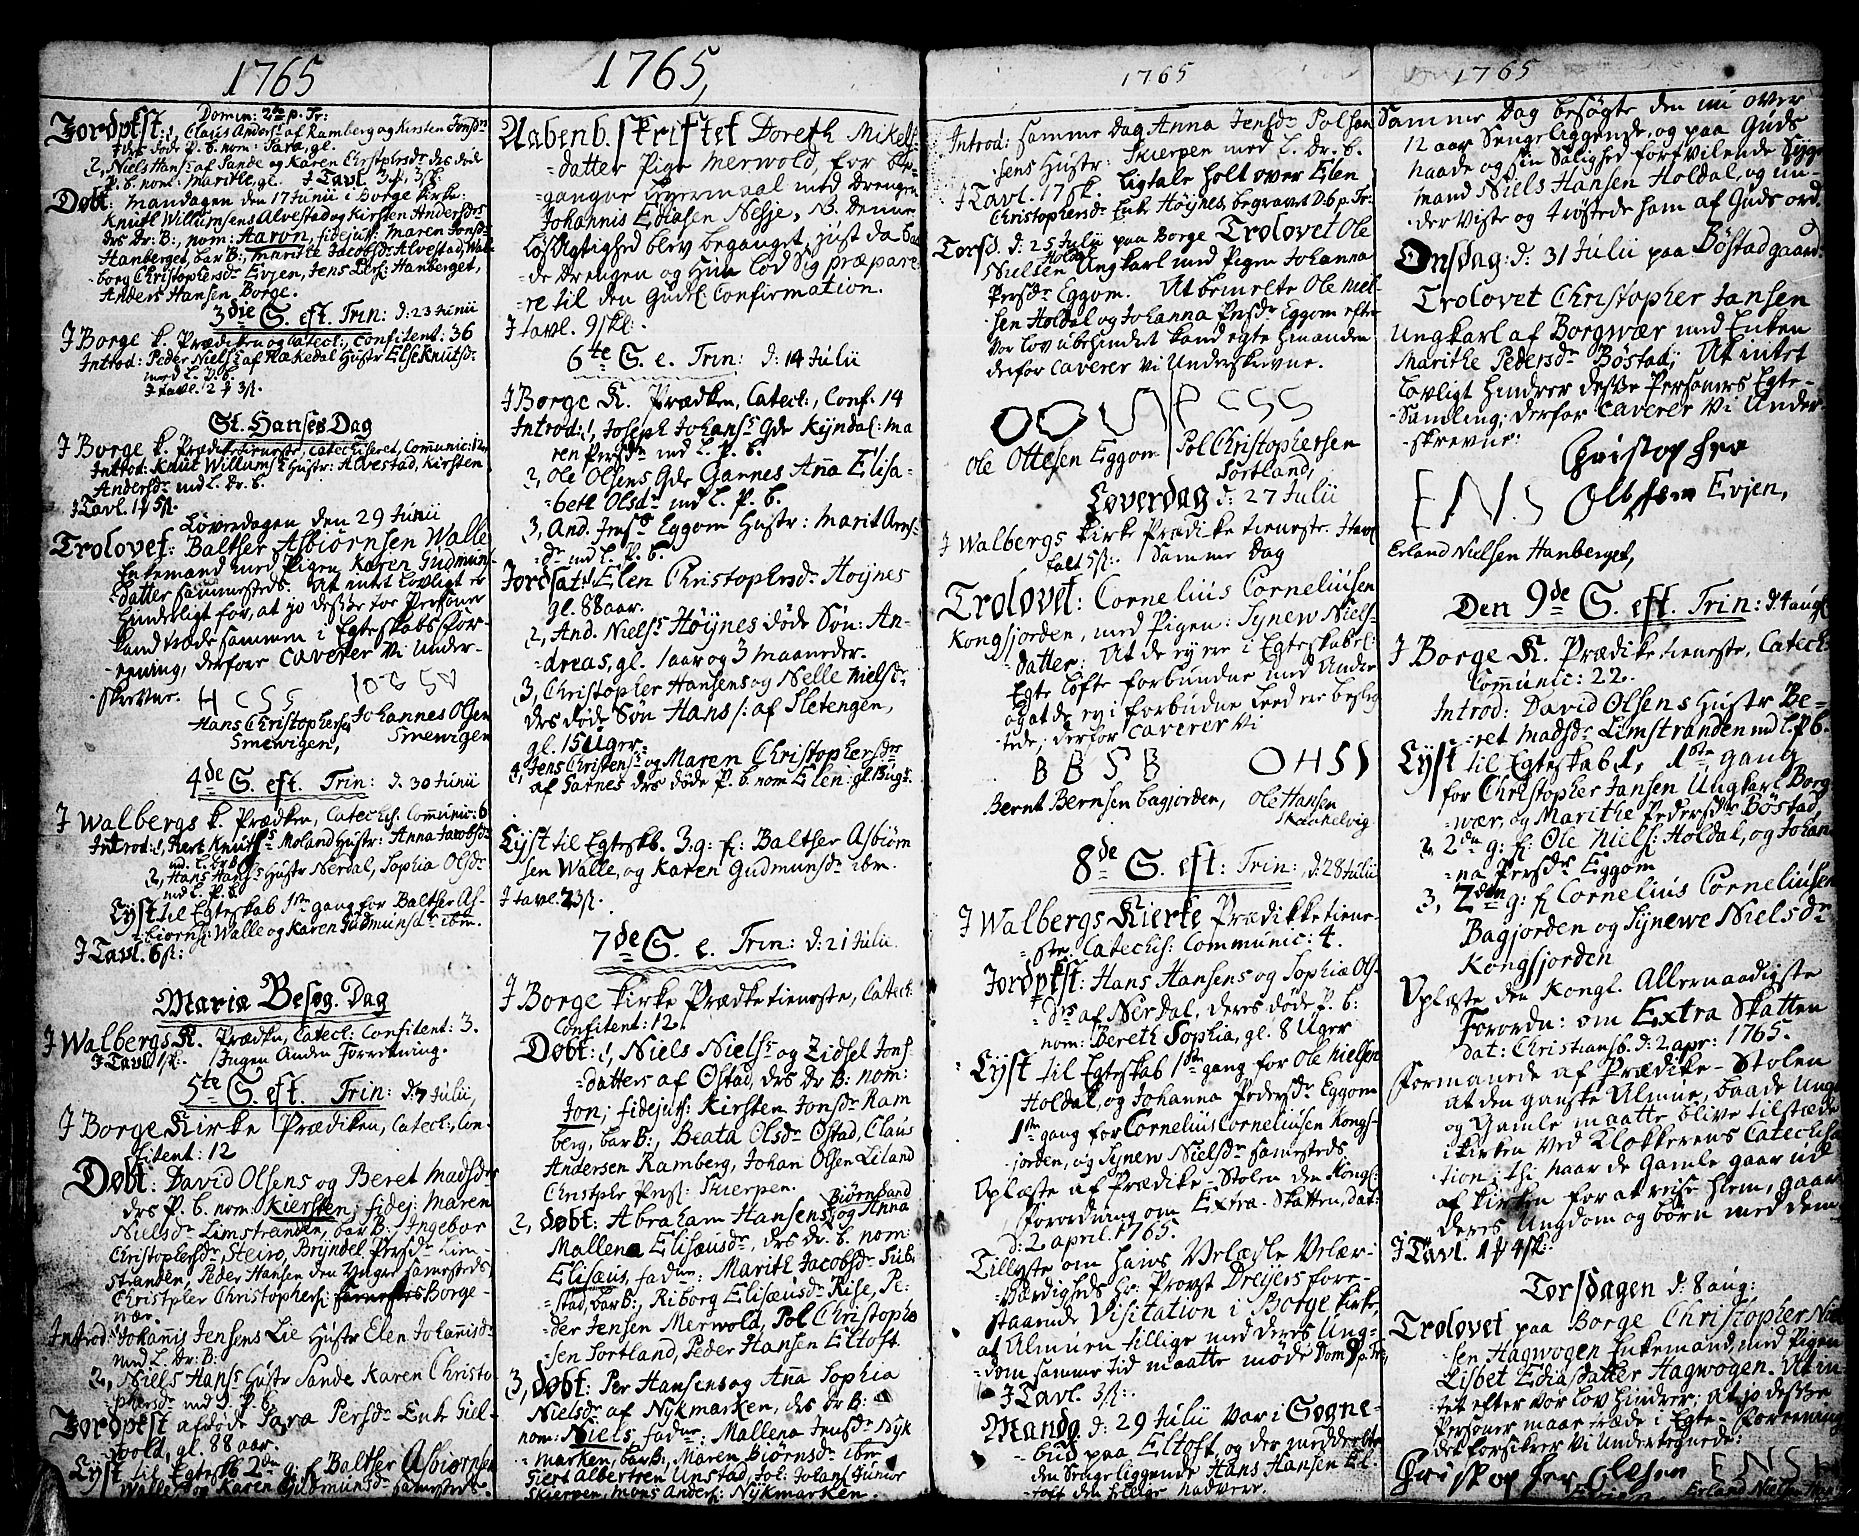 1765
Domin: 2de p. Tr:
Jordpkst: 1, Claus Anders: af Ramberg og Kirsten Jonsdr
des døde P. b. nom: Sara, gl.
2, Niels Hans: af Sande og Karen Christophersdr des døde
P. b. nom: Marithe, gl. J Tavl. 3
Døbt: Mandagen den 17 Junii i Borge kirke
Knut Willumsens Alvestad og Kirsten Andersdrs
drs Dr: B:, nom: Aaron, fidejuss: Maren Jonsdr
Hanberget, bar B: Marithe Jacobsdr Alvestad, Wal-
borg Christophersdr Evjen, Jens Hanberget,
Anders Hansen Borge.
3die S. eft. Trin: d: 23 Junii
J Borge k. Prædiken og Catecl: Confitent: 36
Introd: Peder Niels: af Rækedal Hustr Else Knutsdr
med L. P. b.
J Tavl. 2
St. Hanses Dag
J Borge k. Prædiketieneste, Catechiseret, Communic: 12
Introd: Knut Willums: Hustr: Alvestad, Kirsten
Andersdr med L. Dr. b.
J Tavl. 1
Løverdagen den 29 Junii
Trolovet: Baltser Asbiørnsen Walle
Enkemand med Pigen Karen Gudmuns-
datter sammesteds. At intet Lovligt er
hinderligt for, at jo desse toe Personer
kand træde sammen i Egteskabs For-
eening, derfore Caverer vi under-
skrevne. H C S S
Hans Christophersen Johannes Olsen
Smewigen, Smewigen
4de S. eft. Trin: d. 30 Junii
J Walbergs k. Prædken, Catechis: Communic: 6
Introd: 1, Gert Knuths Moland Hustr: Anna Jacobsdr
md. L. Dr b.
2, Hans Hans: Hustr Nerdal, Sophia Olsdr
md L. P. b.
Lyst til Egteskab 1ste gang for Baltser As-
biørns: Walle og Karen Gudmunsdr ibm.
J Tavl. 6
Mariæ Besøg. Dag
J Walbergs K. Prædkn, Catecl: Confitent: 3.
J Tavl 1 Ingen Anden Forretning.
5te S. eft. Trin: d. 7 Julii,
J Borge Kirke Prædiken, Catecl:, Con-
fitent: 12
Døbt: David Olsens og Beret Madsdrs
des P. b. nom: Kiersten; fidej: Maren
Nielsdr Limstranden, bar B: Ingebor
Christophersdr Steiro, Bryndel Persdr Lim-
stranden, Peder Hansen den Yngre samesteds,
Christpher Christophers: Borge-
vær.
Introd: Johannis Jensens Lie Hustr Elen Johanisdr
med L. Dr: B:
2, Niels Hans: Hustr Sande Karen Christo-
phersdr md L. P. b.
Jordpkst afdøde Sara Persdr Enke Giel-
wold, gl. 88 aar.
Lyst til Egtesk: 2den g: f: Baltser Asbiørnsen
Walle og Karen Gudmunsdr samesteds.
1765,
Aabenb. skriftet Doreth Mikels-
datter Pige Merwold, for be-
gangne Leyermaal med Drengen
Johannis Ediasen Nesje, NB. Denne
Løsagtighed blev beganget, just da ba-
de Drengen og Hun lod sig præpare-
re til den Gudel: Confirmation.
J tavl. 9
6te S. e. Trin: d: 14 Julii
J Borge K. Prædken, Catecl:, Conf: 14
Introd: 1, Joseph Johans: Gde Kyndal: Ma
ren Persdr md L. P. b.
2, Ole Olsens Gde Gannes Anna Elisa-
beth Olsdr md L. P. b.
3, And. Jens: Eggom Hustr: Marit Arns-
dr md L. P. b.
Jordsat: 1, Elen Christophersdr Høynes
gl. 88 aar.
2, And. Niels: Høynes døde Søn: An-
dreas, gl. 1 aar og 3 maaneder.
3, Christopher Hansens og Nelle Nielsdr
drs døde Søn Hans: af Sletengen,
gl. 15 Uger.
4, Jens Christens: og Maren Christophersdrs
af Garnes drs døde P. b. nom Elen: gl. 13 ug:
Lyst til Egteskb. 3. g: f: Baltser Asbiørn
sen Walle, og Karen Gudmunsdr ibm.
J tavl. 23
7de S. e. Trin: d: 21 Julii.
J Borge kirke Prædketieneste, Catecl:
Confitent: 12.
Døbt: 1, Niels Niels: og Zidsel Jons-
datters af Østad, drs Dr B: nom:
Jon; fidejus: Kirsten Jonsdr Ram
berg, bar B:, Beata Olsdr Østad, Claus
Andersen Ramberg, Johan Olsen Liland
Christpher Pers: Skierpen.
2, døbt: Abraham Hansens Biørnsand og Anna
Mallena Elisæusdr, drs Dr. b. nom:
Elisæus, fadne: Marith Jacobsdr Sub-
stad, bar B:, Riborg Elisæusdr Rise, Pe-
der Jensen Merwold, Pol Christopher
sen Sortland, Peder Hansen Eltoft.
3, døbt: Per Hansens og Ana Sophia
Nielsdr af Nykmarken, des Dr B:
nom: Niels, fadne: Mallena Jensdr Nyk
marken, bar B:, Maren Biørnsdr ibm
Giert Albertsen Unstad, Joh: Johans: Junior
Skierpen, Mons Anders: Nykmarken.
1765
Introd: samme Dag Anna Jensdr Polsan
sens Hustr: Skierpen med L. Dr. b.
J Tavl. 17 Ligtale holt over Elen
Christophersdr Enke Høynes begravet D. 6 p. Tr:
Torsd. d: 25 Julii paa Borge Trolovet Ole
Nielsen Holdal Ungkarl med Pigen Johanna
Persdr Eggom. At bemelte Ole Niel-
sen Holdal og Johanna Persdr Eggom efter
vor Lov ubehindret kand egte hinanden
derfor Caverer Vi Underskrevne.
O O U N P C S S
Ole Ottesen Eggom Pol Christophersen
Sortland,
Løverdag d: 27 Julii
J Walbergs kirke Prædiketieneste. J tavl
faldt 5 Samme Dag
Trolovet: Cornelius Corneliusen
Kongsjorden, med Pigen: Synew Niels-
datter: At de ey ere i Egteskabel:
Egte Løfte forbundne med Andre
og at de ey i forbudne Leed ere beslæg
tede; derfor Caverer Vi
B B S B O H S S
Bernt Bernsen Bagjorden, Ole Hansen
Skankelvig
8de S. eft: Trin: d: 28 Julii
J Walbergs Kierke Prædikketiene-
ste, Catechis: Communic: 4.
Jordpkst: Hans Hansens og Sophia Ols-
drs af Nerdal, deres døde P. b:
nom: Bereth Sophia, gl. 8 Uger
Lyst til Egteskab 1ste gang for Ole Nielsen
Holdal, og Johanna Pedersdr Eggom
1ste gang for Cornelius Corneliusen Kongs-
jorden, og Synew Nielsdr samesteds
Oplæste af Prædike-Stolen den Kongl:
Forordning om Extra-Skatten, dat:
d: 2 april. 1765.
Tillyste om hans Velædle Velær-
værdigheds Hr. Provst Dreyers fore-
staaende Visitation i Borge kirke,
at Almuen tillige med deres Ung-
dom samme tid maatte møde Dom 9 p. Tr,
J Tavl. 3
Mandg d: 29 Julii var i Sogne-
bud paa Eltoft, og der meddeelte
den Sengeliggende Hans Hansen El-
toft den hellige Nadvere.
1765
Samme Dag besøgte den nu over
12 aar Sengeliggende, og paa Guds
naade og sin Salighed fortvilende Syge
mand Niels Hansen Holdal, og un-
derviste og trøstede ham af Guds ord.
Onsdag: d: 31 Julii paa Bøstad gaard
Trolovet Christopher Jansen
Ungkarl af Borgwær med Enken
Marithe Pedersdr Bøstad; At intet
Lovligt hindrer desse Personers Egte-
Samling; derfor Caverer Vi Under-
skrevne:
Christopher
E N S Olsen Evjen,
Erland Nielsen Hanberget,
Den 9de S. eft. Trin: d. 4 aug:
J Borge K. Prædiketieneste, Catech:
Communic: 22.
Introd: David Olsens Hustr Be-
ret Madsdr Limstranden md L. P. b.
Lyst til Egteskab 1, 1ste gang
for Christopher Jansen Ungkarl Borg
wær, og Marithe Pedersdr Bøstad,
2, 2den g: f: Ole Niels: Holdal, og Johan-
na Persdr Eggom
3, 2den g: f: Cornelius Corneliusen
Bagjorden og Synewe Nielsdr
Kongsjorden
Oplæste den Kongl. Allernaadigste
Forordn: om Extra Skatten
dat: Christiansb. d: 2 apr: 1765.
Formanede af Prædike-Stolen
at den ganske Almue, baade Unge
og Gamle maatte blive tilstæde
i kirken ved Klokkerens Catechisa
tion; thi naar de Gamle gaar ud
af kirken for at reise hiem, gaar
deres Ungdom og børn med dem.
J Tavl. 1 4
Torsdagen d: 8 aug:
Trolovet paa Borge Christopher Niel
sen Hagwogen Enkemand, med Pigen
Lisbet Ediasdatter Hagwogen. At in-
tet efter vor Lov hindrer, at jo desse
Personer maa træde i Egte-Foreening
det forsikrer Vi Undertegnede:
Christopher Olesen E N S H
Evjen Erland Nielsen Han